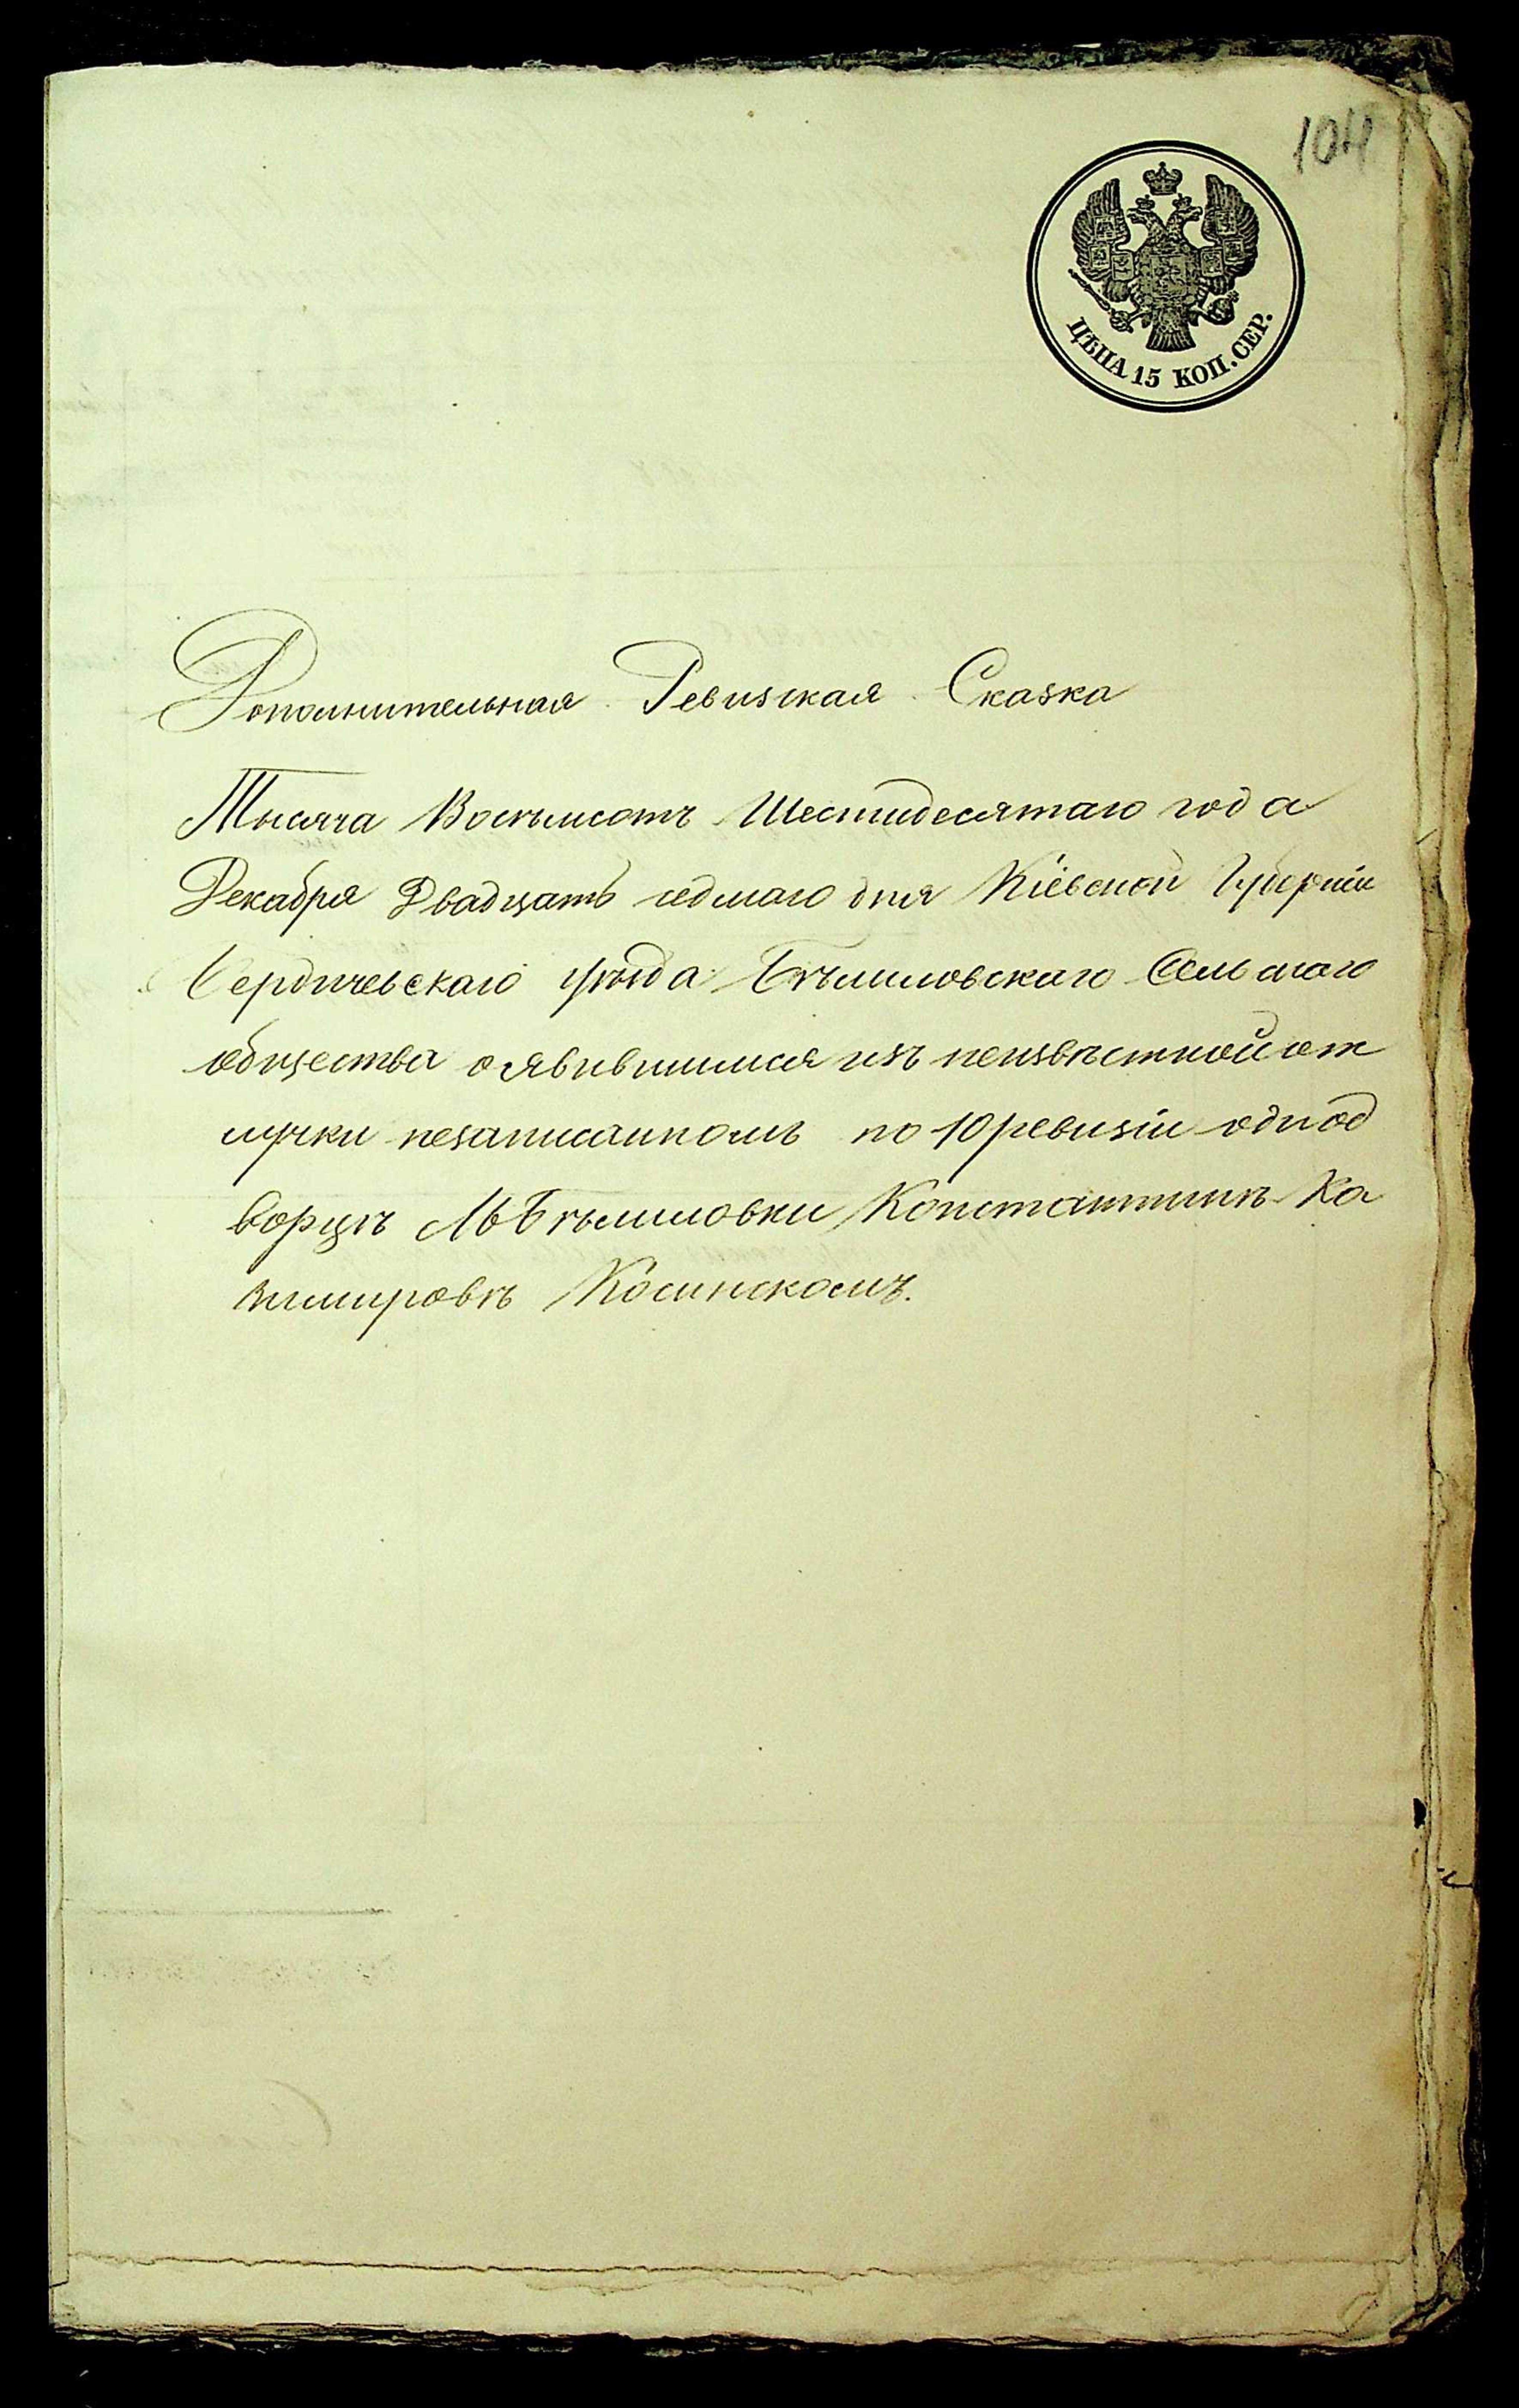 104
ЦѢНА 15 КОП. СЕР.
Дополнительная Ревизская Сказка
Тысяча Восемьсотъ Шестидесятаго года
Декабря Двадцать седмаго дня Кіевской Губерніи
Бердичевскаго уѣзда Бѣлиловскаго Сельскаго
общества о явившимся изъ неизвѣстной от
лучки незаписанномъ по 10 ревизіи однод
ворцѣ М Бѣлиловки Константинѣ Ка
зимировѣ Косинскомъ.